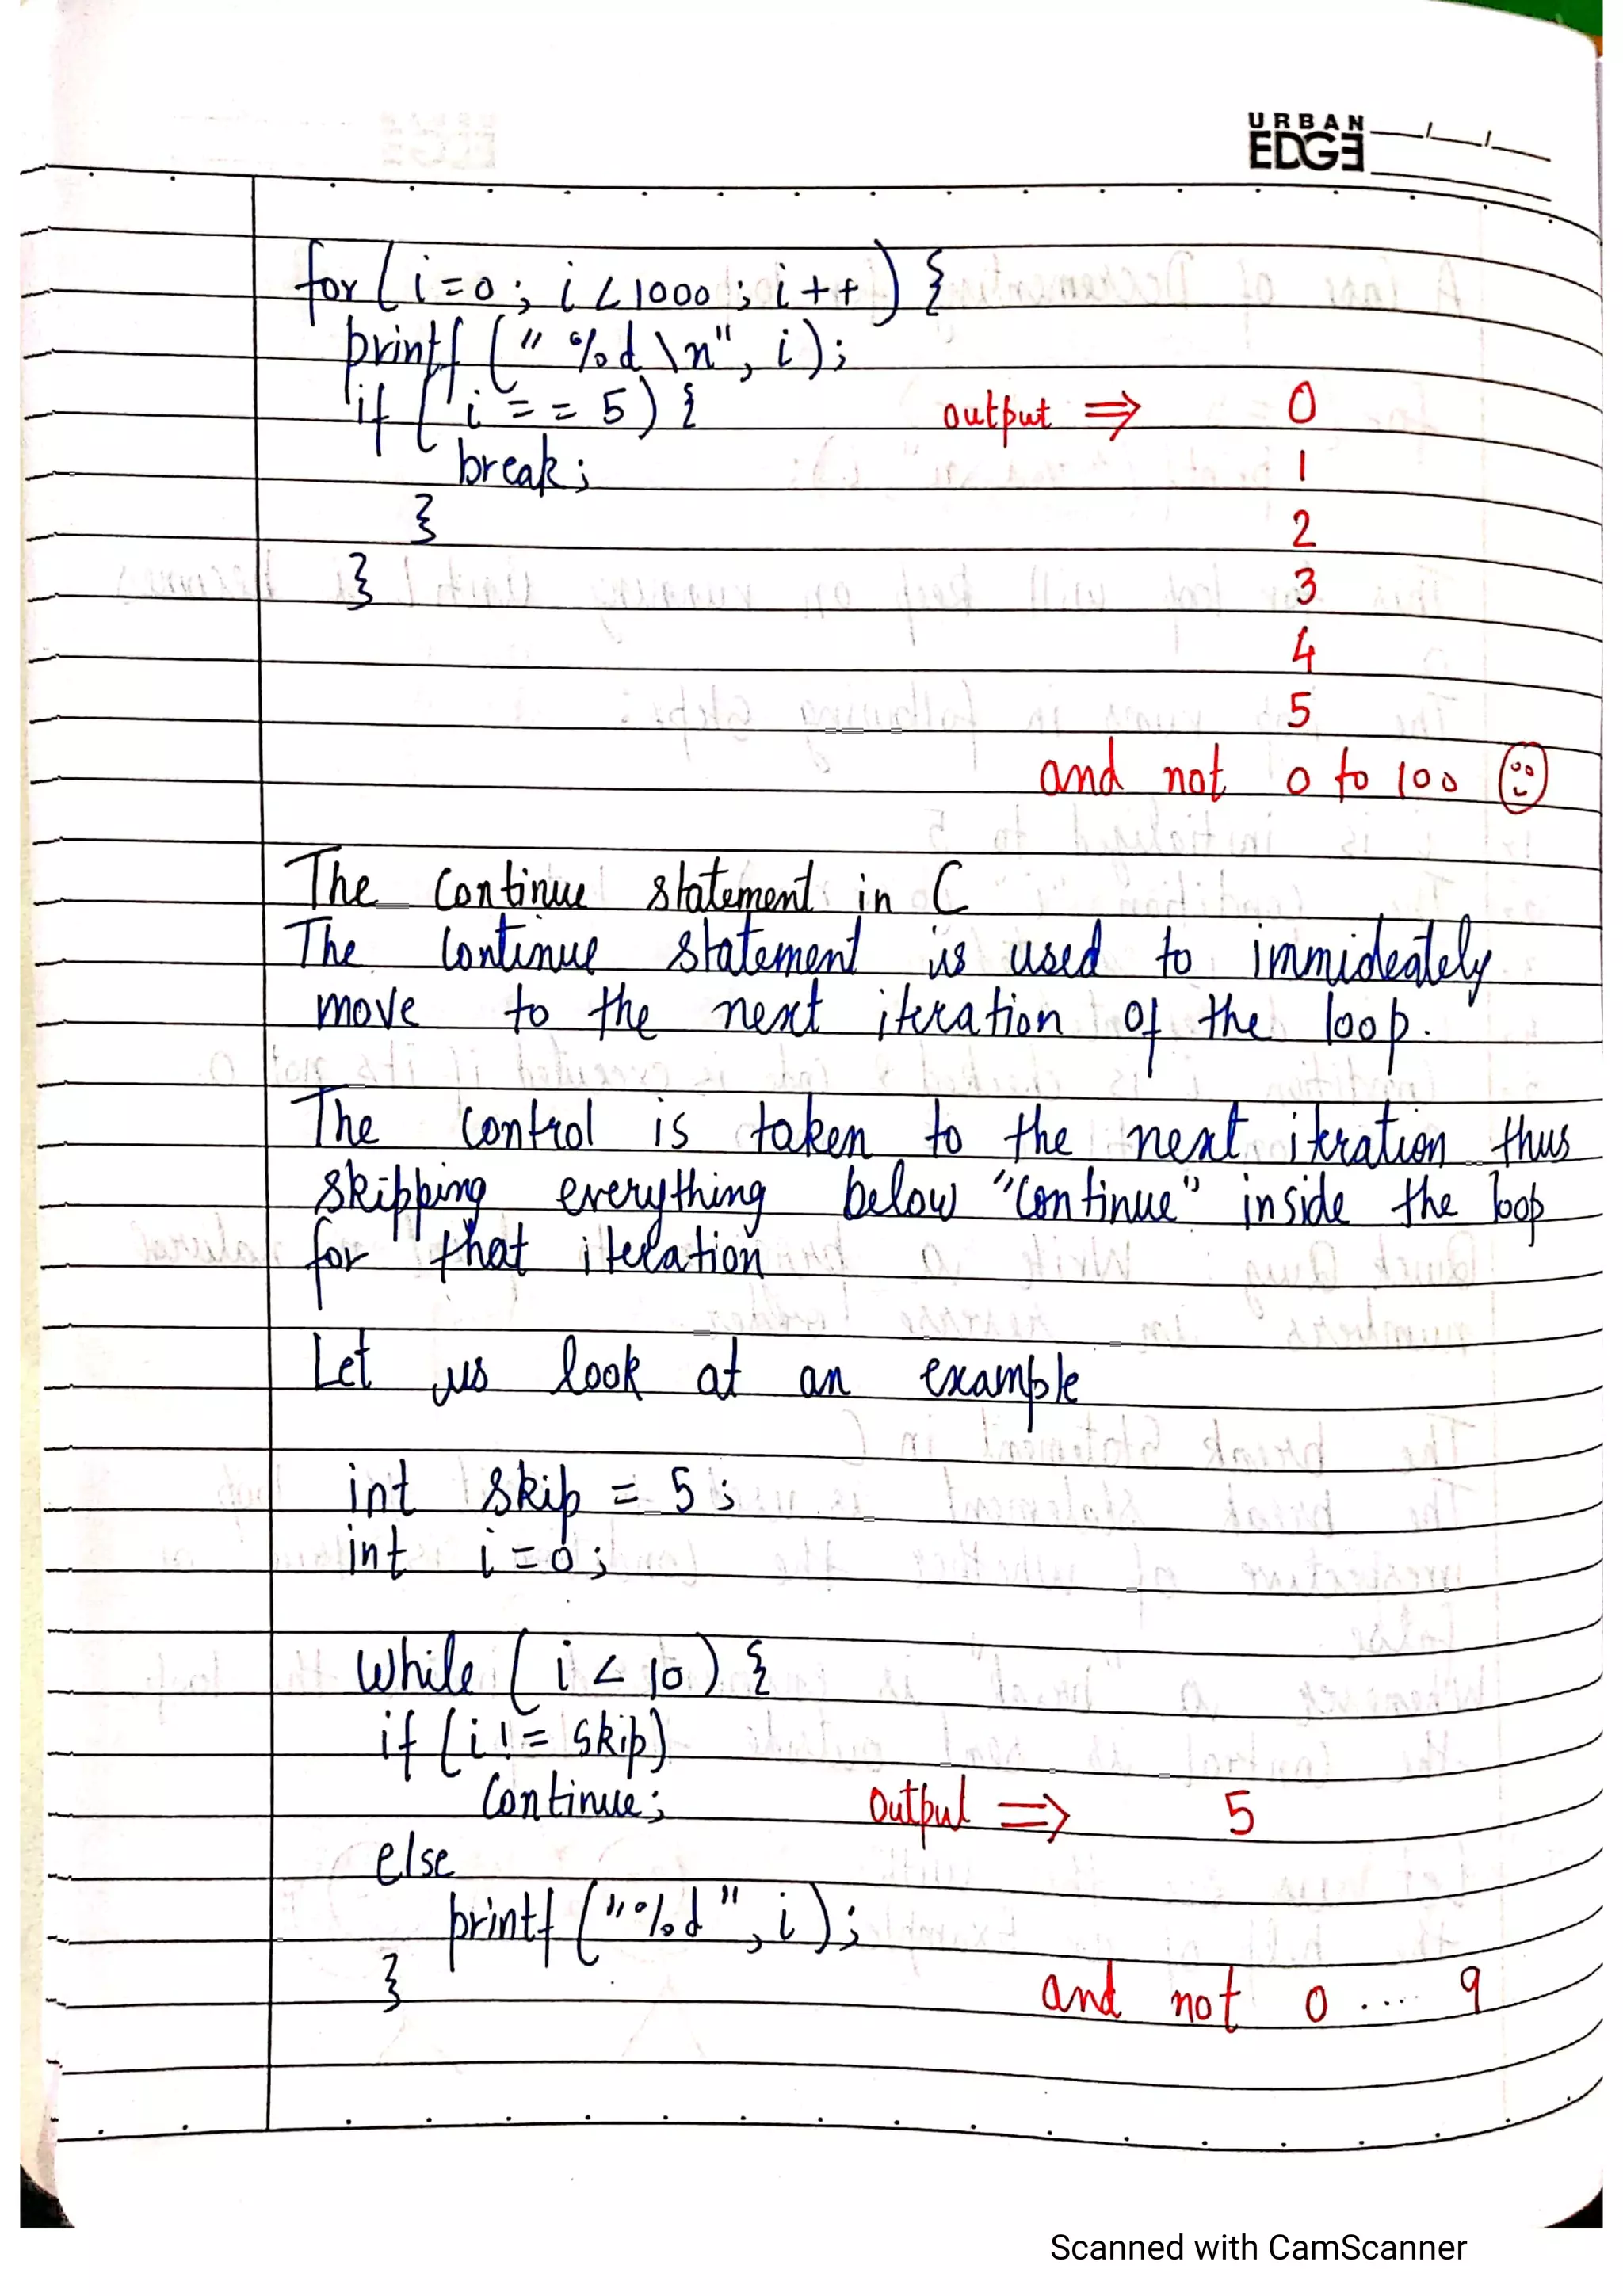 URBAN
EDGE
for (i=0; i<1000; i++) {
printf ("%d\n", i);
if (i == 5) {
output ⇒ 0
break;
1
}
2
}
3
4
5
and not 0 to 100
The Continue statement in C
The Continue statement is used to immideately
move to the next iteration of the loop.
The control is taken to the next iteration thus
skipping everything below "Continue" inside the loop
for that iteration
Let us look at an example
int skip = 5;
int i=0;
while (i < 10) {
if (i != skip)
Continue;
Output ⇒ 5
else
printf ("%d", i);
}
and not 0 .... 9
Scanned with CamScanner